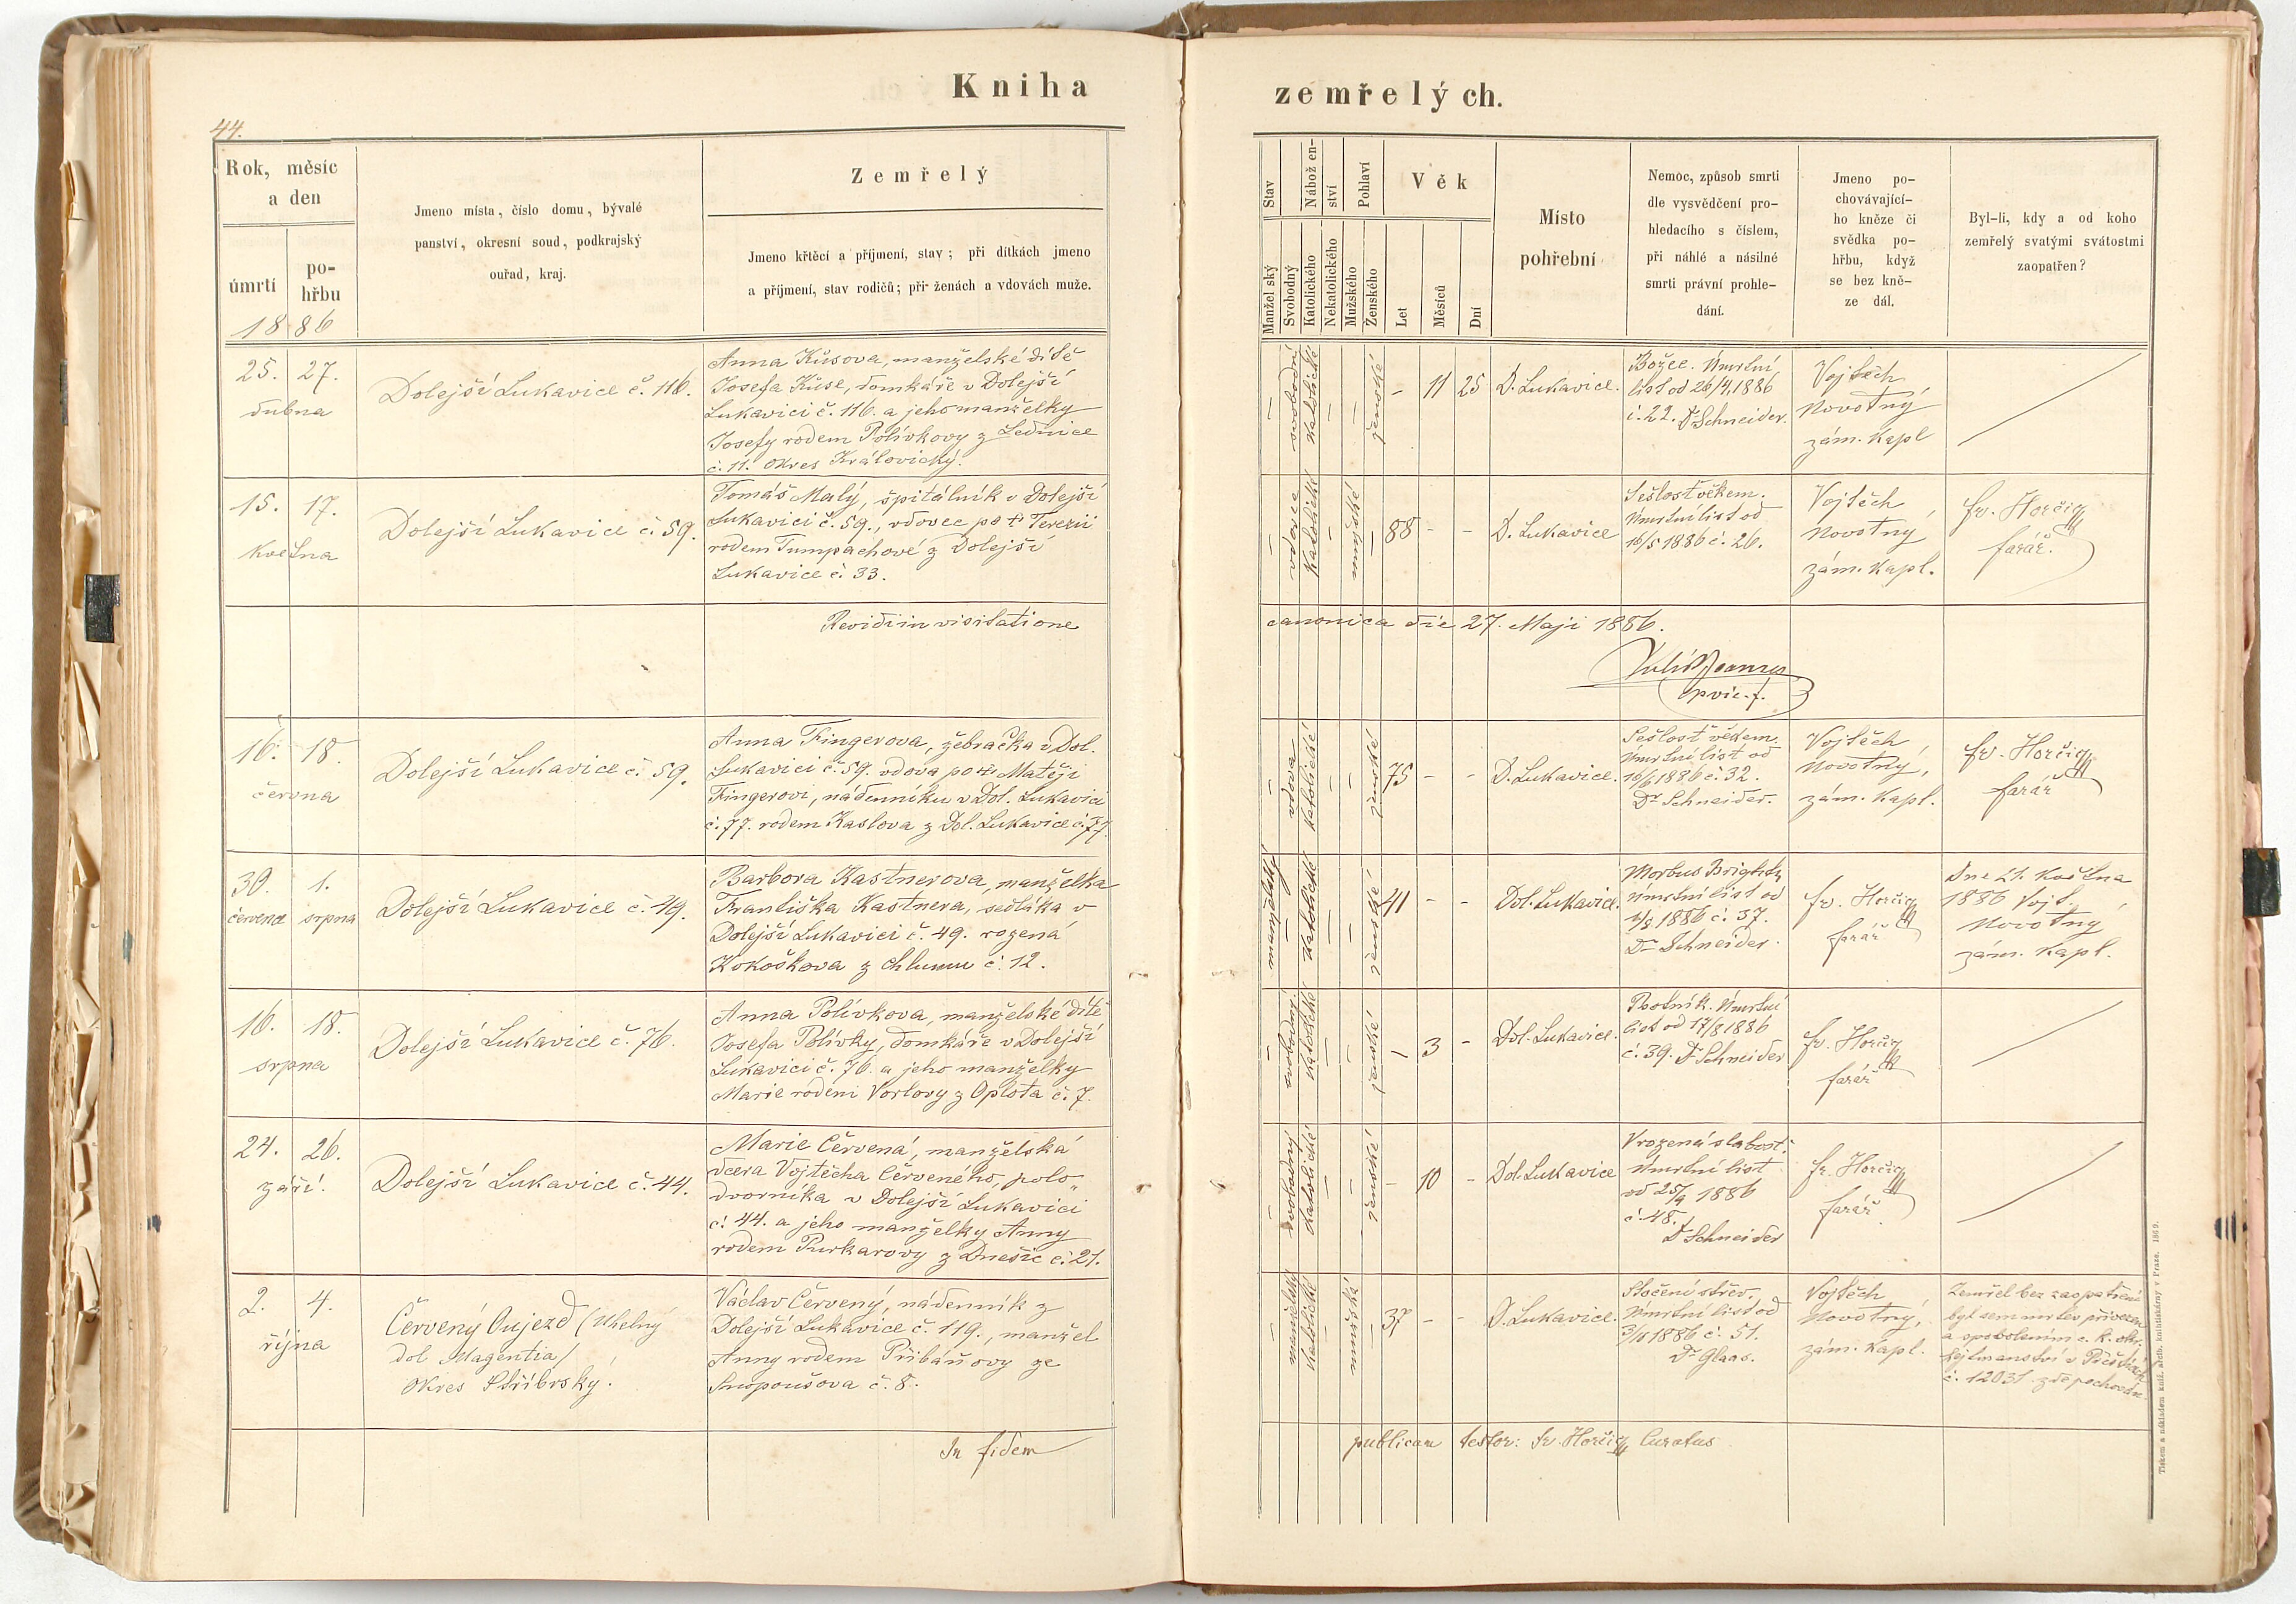 Kniha
zemřelých.
44.
Rok, měsíc
a den
úmrtí
po-
hřbu
1886
Jmeno místa, číslo domu, bývalé
panství, okresní soud, podkrajský
ouřad, kraj.
Zemřelý
Jmeno křtěcí a příjmení, stav; při dítkách jmeno
a příjmení, stav rodičů; při ženách a vdovách muže.
Stav
Manželský
Svobodný
Nábožen-
ství
Katolického
Nekatolického
Pohlaví
Mužského
Ženského
Věk
Let
Měsíců
Dní
Místo
pohřební
Nemoc, způsob smrti
dle vysvědčení pro-
hledacího s číslem,
při náhlé a násilné
smrti právní prohle-
dání.
Jmeno po-
chovávající-
ho kněze či
svědka po-
hřbu, když
se bez kně-
ze dál.
Byl-li, kdy a od koho
zemřelý svatými svátostmi
zaopatřen?
25. 27.
dubna
Dolejší Lukavice č. 116.
Anna Kůsova, manželské dítě
Josefa Kůse, domkáře v Dolejší
Lukavici č. 116. a jeho manželky
Josefy rodem Polívkovy z Lednice
č. 11. okres Královický.
- svobodní katolické - - ženské
- 11 25
D. Lukavice.
Božec. Úmrtní
list od 26/4 1886
č. 22. Dr Schneider.
Vojtěch
Novotný
zám. kapl
15. 17.
května
Dolejší Lukavice č. 59.
Tomáš Malý, špitálník v Dolejší
Lukavici č. 59., vdovec po † Terezii
rodem Tumpachové z Dolejší
Lukavice č. 33.
- vdovec katolické - mužské -
88 - -
D. Lukavice
Sešlosť věkem.
Úmrtní list od
16/5 1886 č. 26.
Vojtěch
Novotný
zám. kapl.
fr. Horčig
farář.
Revidi in visitatione
canonica die 27. Maji 1886.
pvic. f.
16. 18.
června
Dolejší Lukavice č. 59.
Anna Fingerova, žebračka v Dol.
Lukavici č. 59. vdova po † Matěji
Fingerovi, nádenníku v Dol. Lukavici
č. 77. rodem Kaslova z Dol. Lukavice č. 77.
- vdova katolické - - ženské
75 - -
D. Lukavice.
Sešlosť věkem.
Úmrtní list od
16/6 1886 č. 32.
Dr Schneider.
Vojtěch
Novotný,
zám. kapl.
fr. Horčig
farář
30. 1.
července srpna
Dolejší Lukavice č. 49.
Barbora Kastnerova, manželka
Františka Kastnera, sedláka v
Dolejší Lukavici č. 49. rozená
Kokoškova z Chlumu č. 12.
manželský - katolické - - ženské
41 - -
Dol. Lukavice.
Morbus Brightii
Úmrtní list od
1/8 1886 č. 37.
Dr Schneider.
fr. Horčig
farář
Dne 21. května
1886 Vojt.
Novotný
zám. kapl.
16. 18.
srpna
Dolejší Lukavice č. 76.
Anna Polívkova, manželské dítě
Josefa Polívky, domkáře v Dolejší
Lukavici č. 76. a jeho manželky
Marie rodem Vorlovy z Oplota č. 7.
- svobodný katolické - - ženské
- 3 -
Dol. Lukavice.
Psotník. Úmrtní
list od 17/8 1886
č. 39. Dr Schneider
fr. Horčig
farář
24. 26.
září.
Dolejší Lukavice č. 44.
Marie Červená, manželská
dcera Vojtěcha Červeného, polo-
dvorníka v Dolejší Lukavici
č. 44. a jeho manželky Anny
rodem Purkarovy z Dnešic č. 21.
- svobodný katolické - - ženské
- 10 -
Dol. Lukavice
Vrozená slabost.
Úmrtní list
od 25/9 1886
č. 48.
Dr Schneider
fr. Horčig
farář.
2. 4.
října
Červený Oujezd (Uhelný
dol Magentia)
okres Stříbrský.
Václav Červený, nádenník z
Dolejší Lukavice č. 119., manžel
Anny rodem Přibáňovy ze
Snopoušova č. 8.
- manželský katolické - mužské -
37 - -
D. Lukavice.
Stočení střev.
Úmrtní list od
3/10 1886 č. 51.
Dr Glaas.
Vojtěch
Novotný,
zám. kapl.
Zemřel bez zaopatření
byl sem mrtev přivezen
a s povolením c. k. okr.
hejtmanství v
č. 12031 zde pochován.
In fidem
publicam testor: fr. Horčig Curatus
Tiskem a nákladem kníž. arcib. knihtiskárny v Praze. 1869.